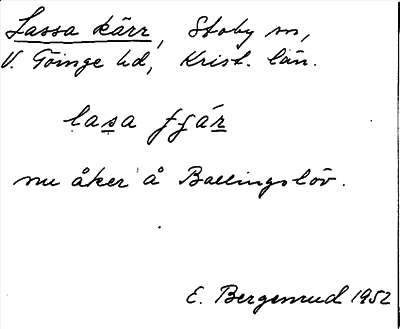 Lassa kärr, Stoby sn,
V. Göinge hd, Krist. län.
lasa fjár
nu åker å Ballingslöv.
E. Bergenrud 1952